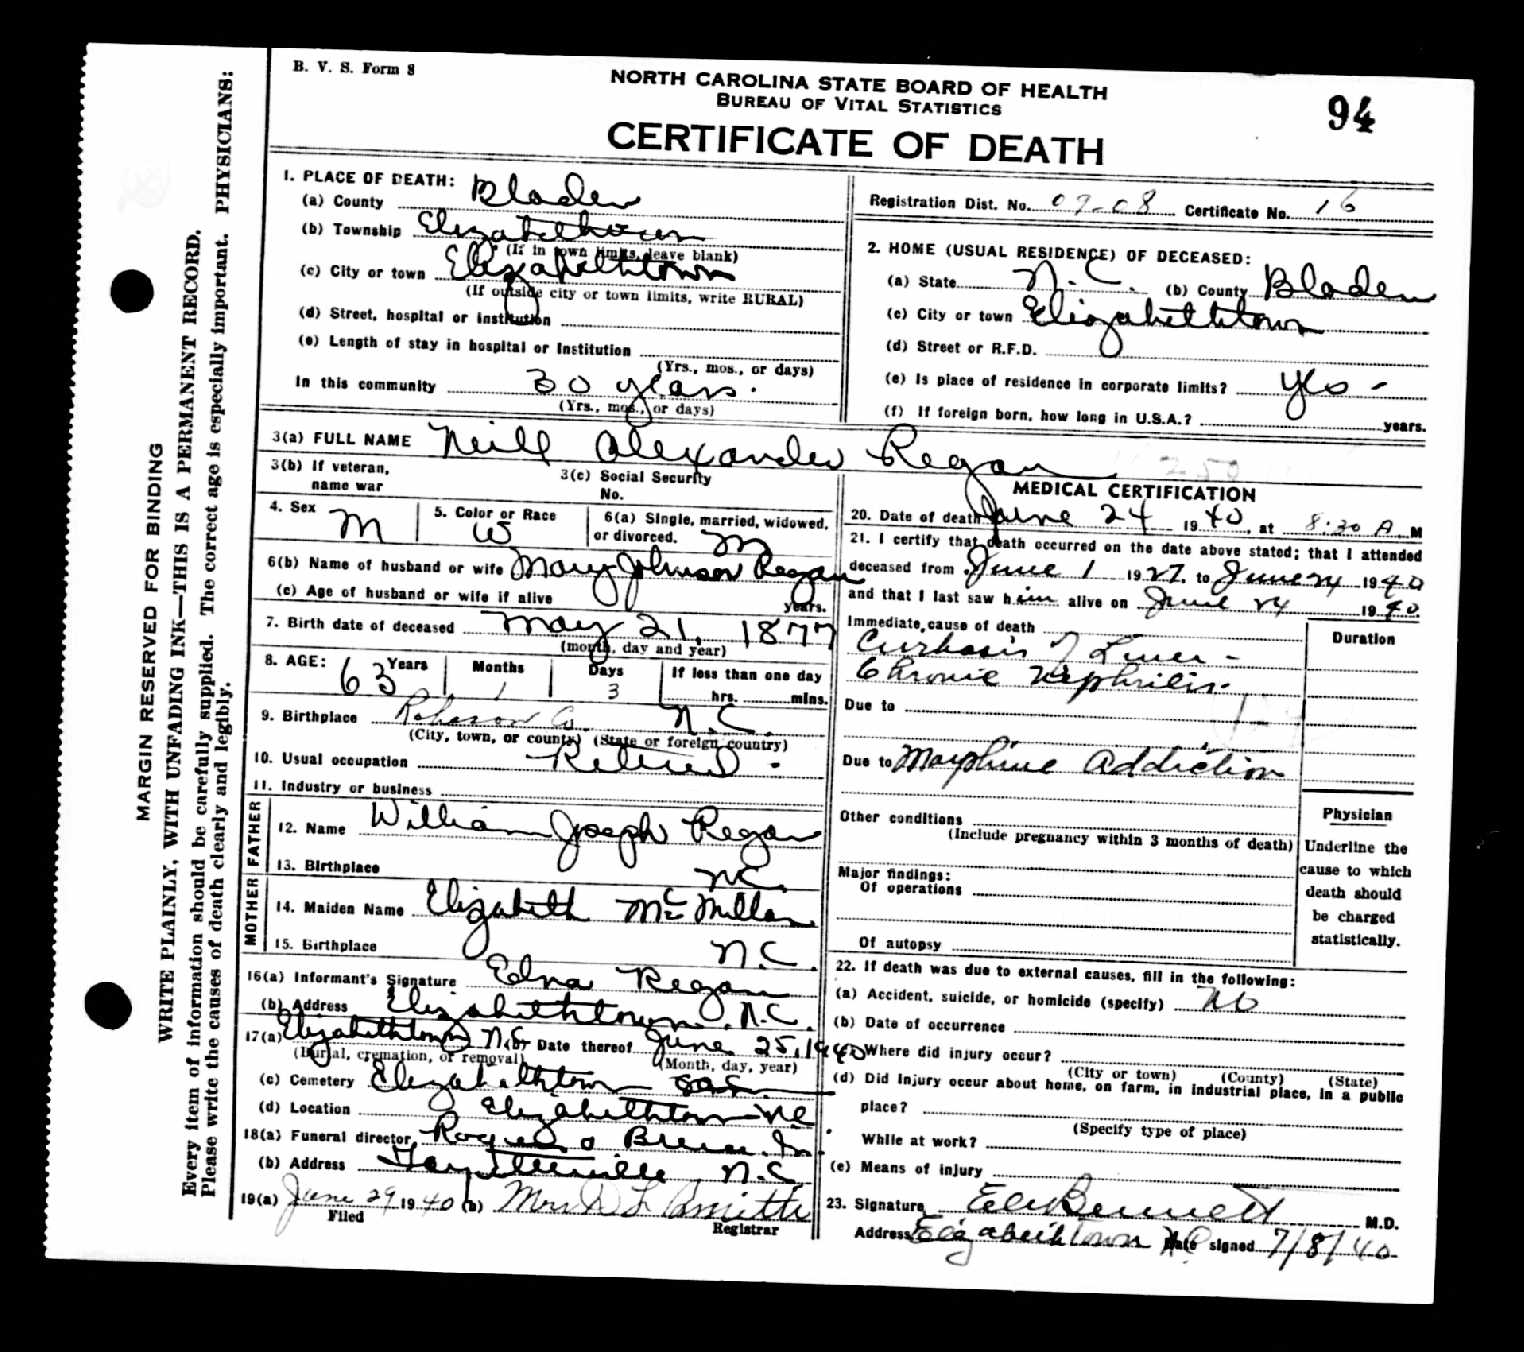 B. V. S. Form 8
NORTH CAROLINA STATE BOARD OF HEALTH
BUREAU OF VITAL STATISTICS
CERTIFICATE OF DEATH
94
MARGIN RESERVED FOR BINDING
WRITE PLAINLY, WITH UNFADING INK—THIS IS A PERMANENT RECORD.
Every item of information should be carefully supplied. The correct age is especially important. PHYSICIANS:
Please write the causes of death clearly and legibly.
1. PLACE OF DEATH:
(a) County Bladen
(b) Township Elizabethtown
(If in town limits, leave blank)
(c) City or town Elizabethtown
(If outside city or town limits, write RURAL)
(d) Street, hospital or institution
(e) Length of stay in hospital or Institution
(Yrs., mos., or days)
In this community 30 years.
(Yrs., mos., or days)
Registration Dist. No. 09-08 Certificate No. 16
2. HOME (USUAL RESIDENCE) OF DECEASED:
(a) State N.C. (b) County Bladen
(c) City or town Elizabethtown
(d) Street or R.F.D.
(e) Is place of residence in corporate limits? yes -
(f) If foreign born, how long in U.S.A.? years.
3(a) FULL NAME Neill Alexander Regan
3(b) If veteran,
name war
3(c) Social Security
No.
4. Sex M
5. Color or Race W
6(a) Single, married, widowed,
or divorced. M
6(b) Name of husband or wife Mary Johnson Regan
(c) Age of husband or wife if alive years.
7. Birth date of deceased May 21, 1877
(month, day and year)
8. AGE: 63 Years
Months 1
Days 3
If less than one day
hrs. mins.
9. Birthplace Robeson Co. N.C.
(City, town, or county) (State or foreign country)
10. Usual occupation Retired.
11. Industry or business
FATHER
12. Name William Joseph Regan
13. Birthplace N.C.
MOTHER
14. Maiden Name Elizabeth McMillan
15. Birthplace N.C.
16(a) Informant's Signature Edna Regan
(b) Address Elizabethtown, N.C.
17(a) Elizabethtown N.C. (b) Date thereof June 25, 1940
(Burial, cremation, or removal) (Month, day, year)
(c) Cemetery Elizabethtown
(d) Location Elizabethtown N.C.
18(a) Funeral director Rogers & Breece Inc.
(b) Address Fayetteville, N.C.
19(a) June 29 1940 (b) Mrs.
Filed Registrar
MEDICAL CERTIFICATION
20. Date of death June 24 1940, at 8:30 A. M
21. I certify that death occurred on the date above stated; that I attended
deceased from June 1 1927. to June 24 1940
and that I last saw him alive on June 24 1940.
Immediate cause of death
Cirrhosis of Liver -
Chronic Nephritis.
Due to
Due to Morphine Addiction
Duration
Other conditions
(Include pregnancy within 3 months of death)
Major findings:
Of operations
Of autopsy
Physician
Underline the
cause to which
death should
be charged
statistically.
22. If death was due to external causes, fill in the following:
(a) Accident, suicide, or homicide (specify) No
(b) Date of occurrence
(c) Where did injury occur?
(City or town) (County) (State)
(d) Did injury occur about home, on farm, in industrial place, in a public
place?
(Specify type of place)
While at work?
(e) Means of injury
23. Signature Bennett M.D.
Address Elizabethtown N.C. Date signed 7/8/40